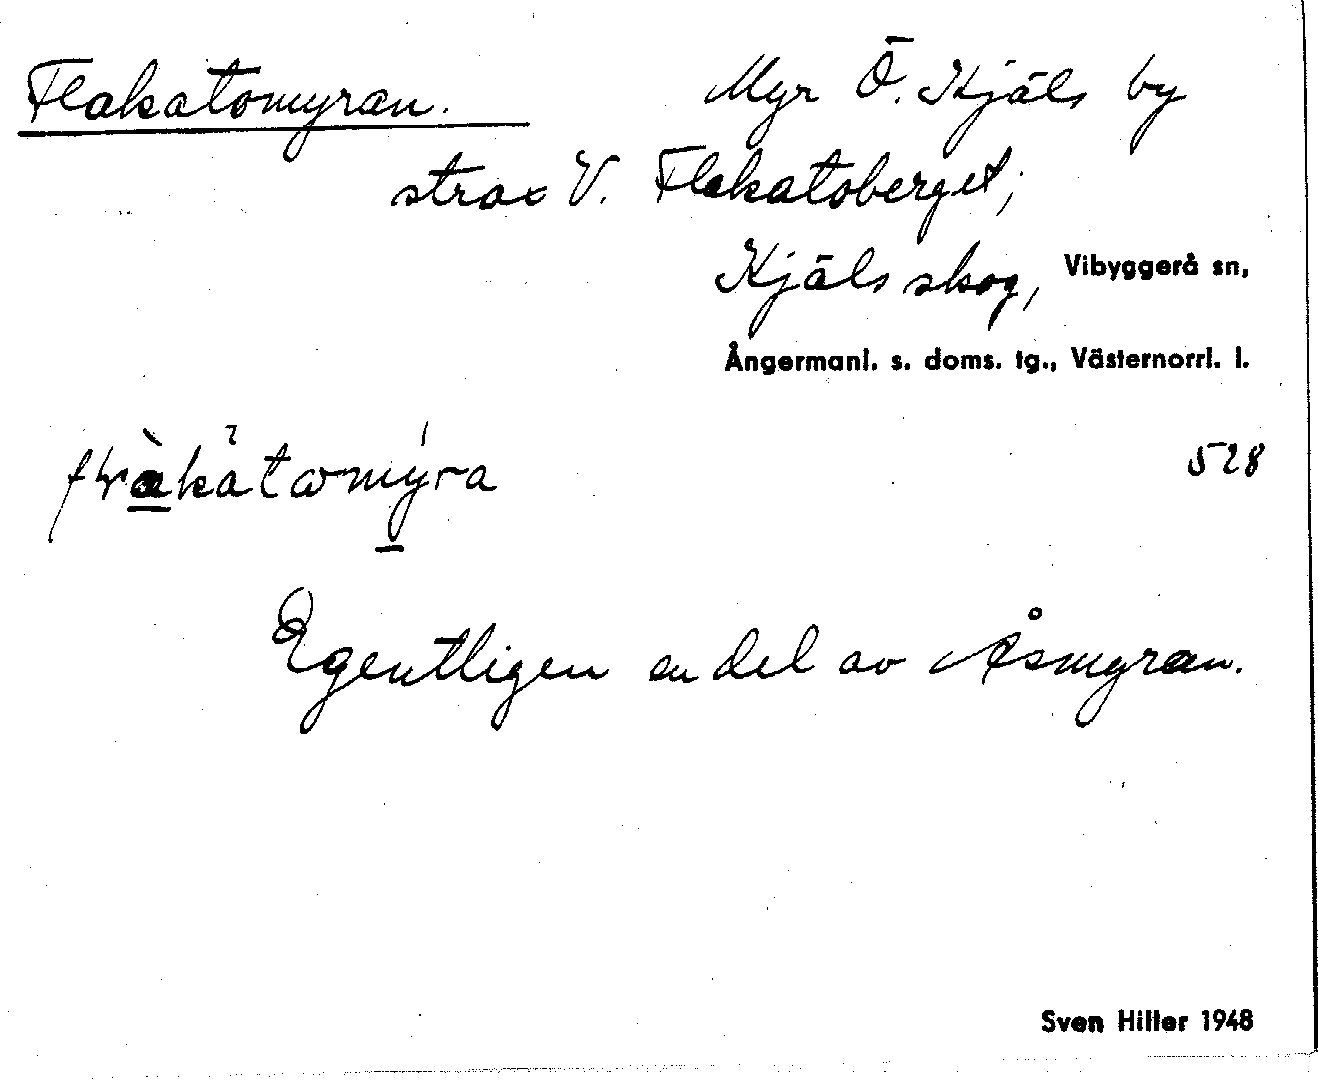 Flakatomyran. Myr Ö. Kjäls by
strax V. Flakatoberget;
Kjäls skog, Vibyggerå sn,
Ångermanl. s. doms. tg., Västernorrl. l.
528
Egentligen en del av Åsmyran.
Sven Hiller 1948